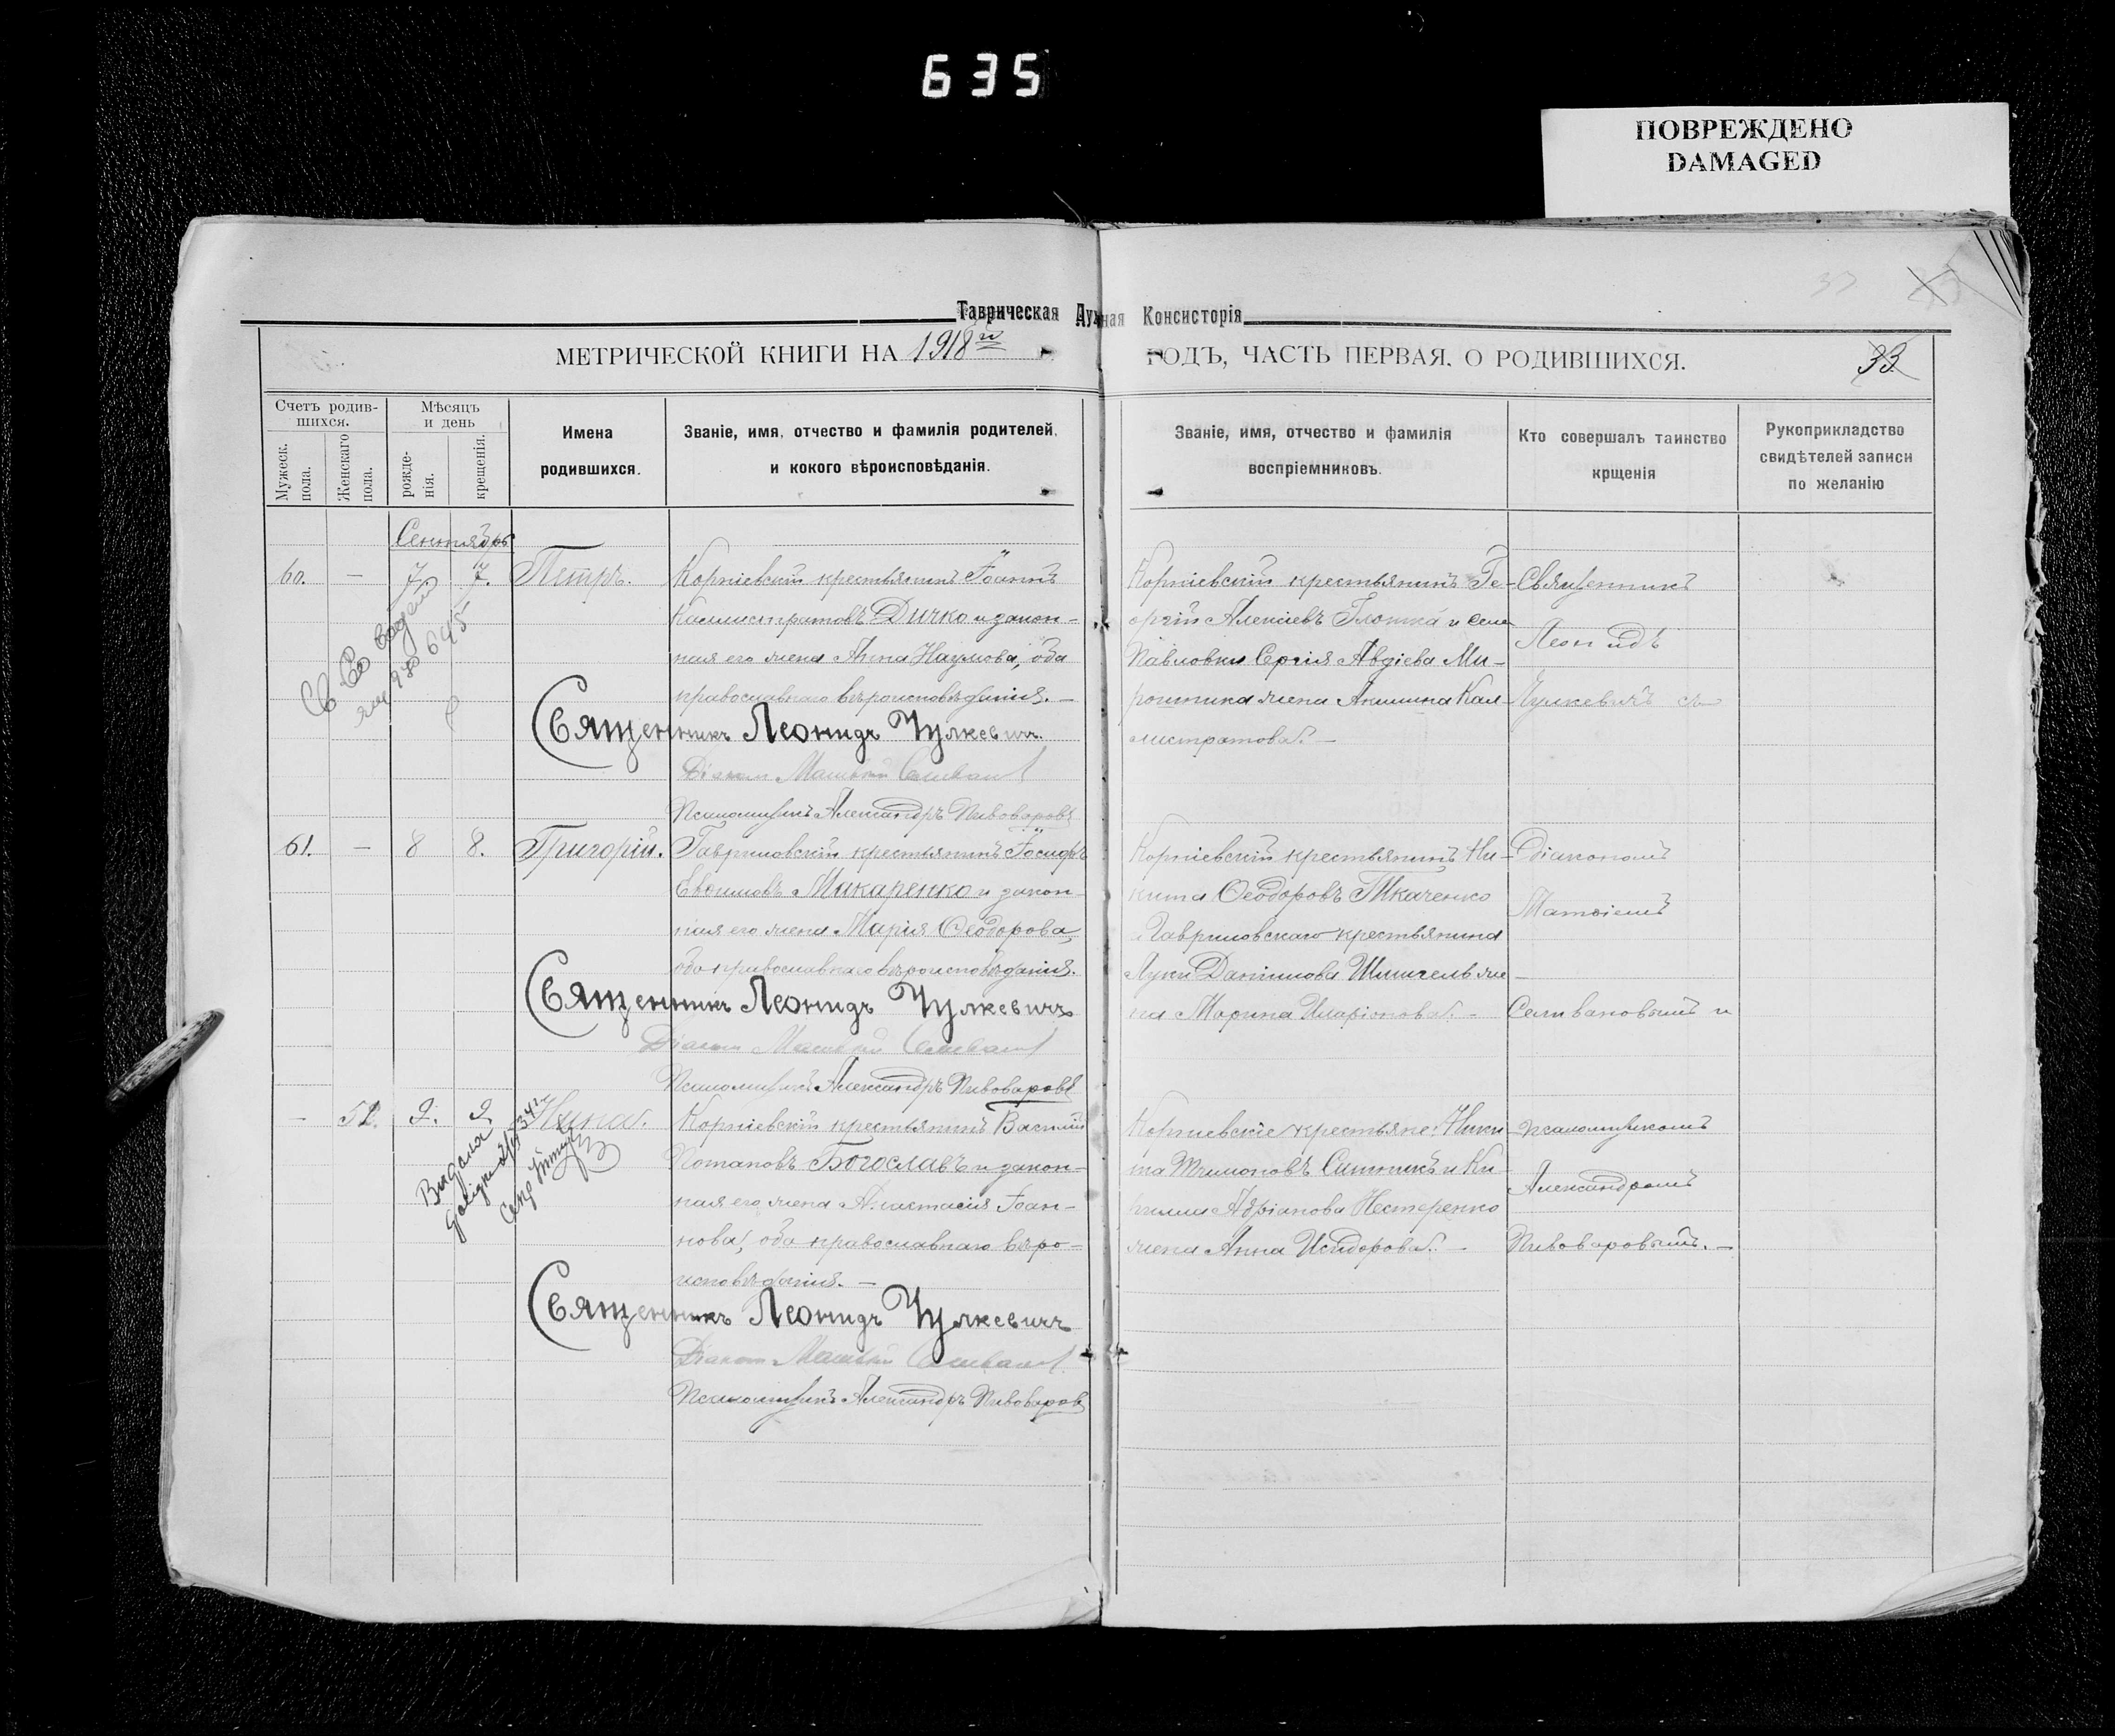 635
ПОВРЕЖДЕНО
DAMAGED
Таврическая Духовная Консисторія
МЕТРИЧЕСКОЙ КНИГИ НА 1918й ГОДЪ, ЧАСТЬ ПЕРВАЯ, О РОДИВШИХСЯ.
33
Счетъ родив-
шихся.
Мужеск.
пола.
Женскаго
пола.
Мѣсяцъ
и день
рожде-
нія.
крещенія.
Имена
родившихся.
Званіе, имя, отчество и фамилія родителей,
и кокого вѣроисповѣданія.
Званіе, имя, отчество и фамилія
воспріемниковъ.
Кто совершалъ таинство
крщенія
Рукоприкладство
свидѣтелей записи
по желанію
Сентябрь
60. — 7 7. Петръ.
Корніевскій крестьянинъ Іоаннъ
Каллистратовъ Дичко и закон-
ная его жена Анна Наумова, оба
православнаго вѣроисповѣданія. —
Священникъ Леонидъ Чулкевичъ
Діаконъ Матѳій Селиванов
Псаломщикъ Александръ Пивоваровъ
Корніевскій крестьянинъ Ге-
оргій Алексіевъ Глотка и села
Павловки Сергія Авдіева Ми-
рошника жена Акилина Кал-
листратова. —
Священникъ
Леонидъ
Чулкевичъ съ
61. — 8 8. Григорій.
Гавриловскій крестьянинъ Іосифъ
Евѳимовъ Макаренко и закон-
ная его жена Марія Ѳеодорова,
оба православнаго вѣроисповѣданія.
Священникъ Леонидъ Чулкевичъ
Діаконъ Матѳій Селиванов
Псаломщикъ Александръ Пивоваровъ
Корніевскій крестьянинъ Ни-
кита Ѳеодоровъ Ткаченко
и Гавриловскаго крестьянина
Луки Даніилова жe-
на Марина Иларіонова. —
Діакономъ
Матѳіемъ
Селивановымъ и
— 52. 9. 9. Нина.
Корніевскій крестьянинъ Василій
Потаповъ Богославъ и закон-
ная его жена Анастасія Іоан-
нова, оба православнаго вѣро-
исповѣданія. —
Священникъ Леонидъ Чулкевичъ
Діаконъ Матѳій Селиванов
Псаломщикъ Александръ Пивоваров
Корніевскіе крестьяне: Ники-
та Ситникъ и Ки-
рилла Адріанова Нестеренко
жена Анна Исидорова. —
псаломщикомъ
Александромъ
Пивоваровымъ. —